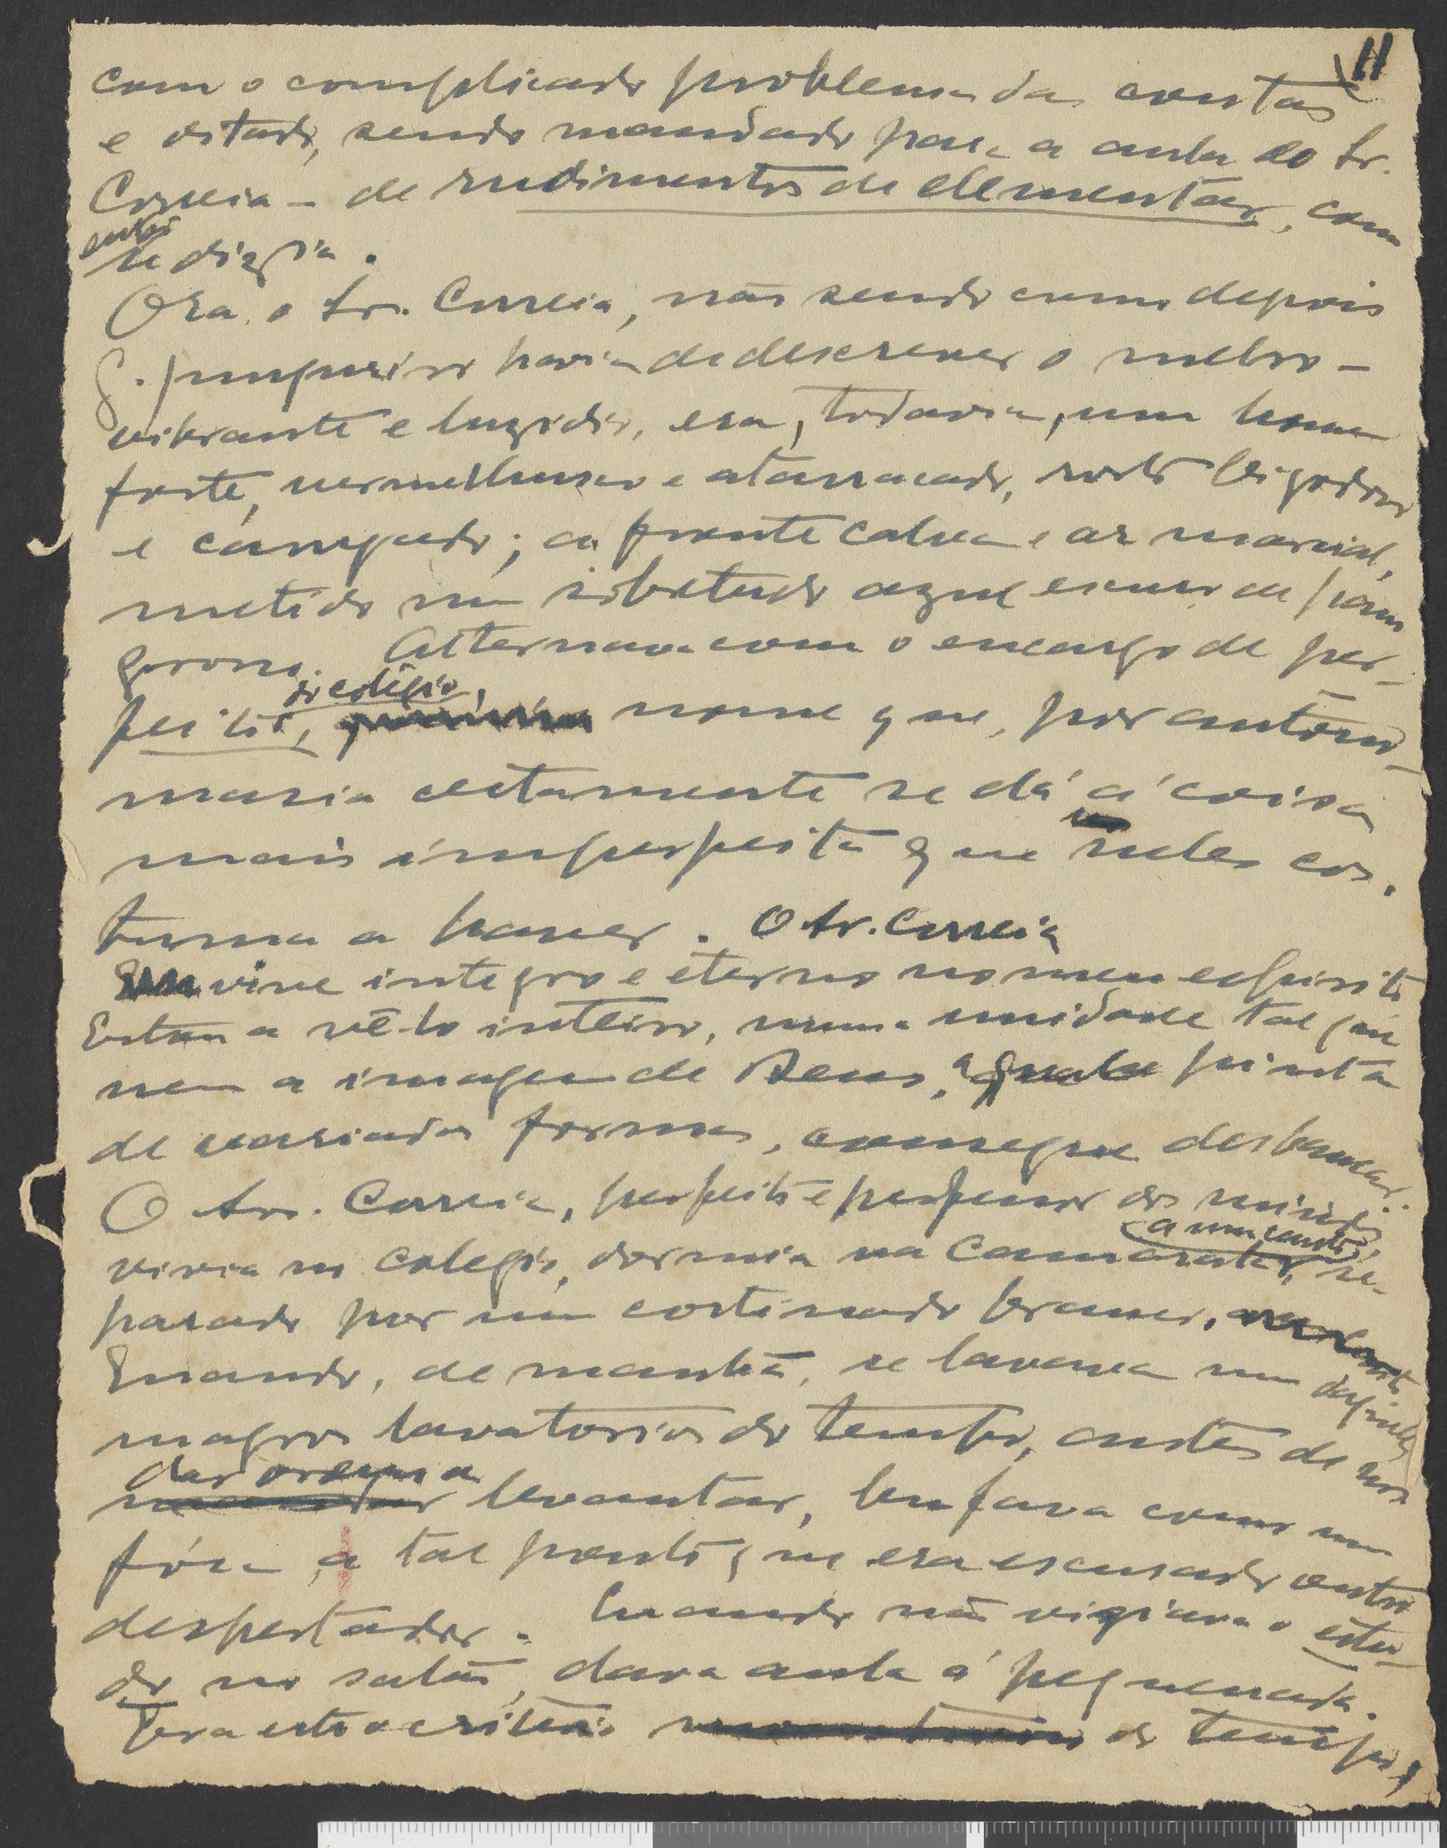 11
com o complicado problema das contas
e ditado, sendo mandado para a aula do Sr.
Correia – de rudimentos de elementar, como
então
se dizia.
Ora o Sr. Correia, não sendo como depois
G. Junqueiro havia de descrever o melro –
vibrante e luzidio, era, todavia, um homem
forte, vermelhusco e atarracado, rosto bigodudo
e a fronte calva e ar marcial,
metido num sobretudo azul escuro de pano
grosso. Alternava com o encargo de per-
do colégio,
feito, nome que, por antono-
masia certamente se dá á coisa
mais imperfeita que neles cos-
tuma a haver. O Sr. Correia
vive integro e eterno no meu espirito
Estou a vê-lo inteiro, numa unidade tal que
nem a imagem de Deus, pinta
de variadas formas, consegue desbancar.
O Sr. Correia, perfeito e professor dos
a um canto,
vivia no colegio, dormia na camarata, se-
parado por um cortinado branco.
Quando, de manhã, se lavava num daqueles
magros lavatorios do tempo, antes de nos
dar ordem a
levantar, bufava como uma
fóca a tal ponto que era escusado outro
despertador. Quando não vigiava o estu-
do no salão, dava aula á pequenada.
Era este o critério do tempo,